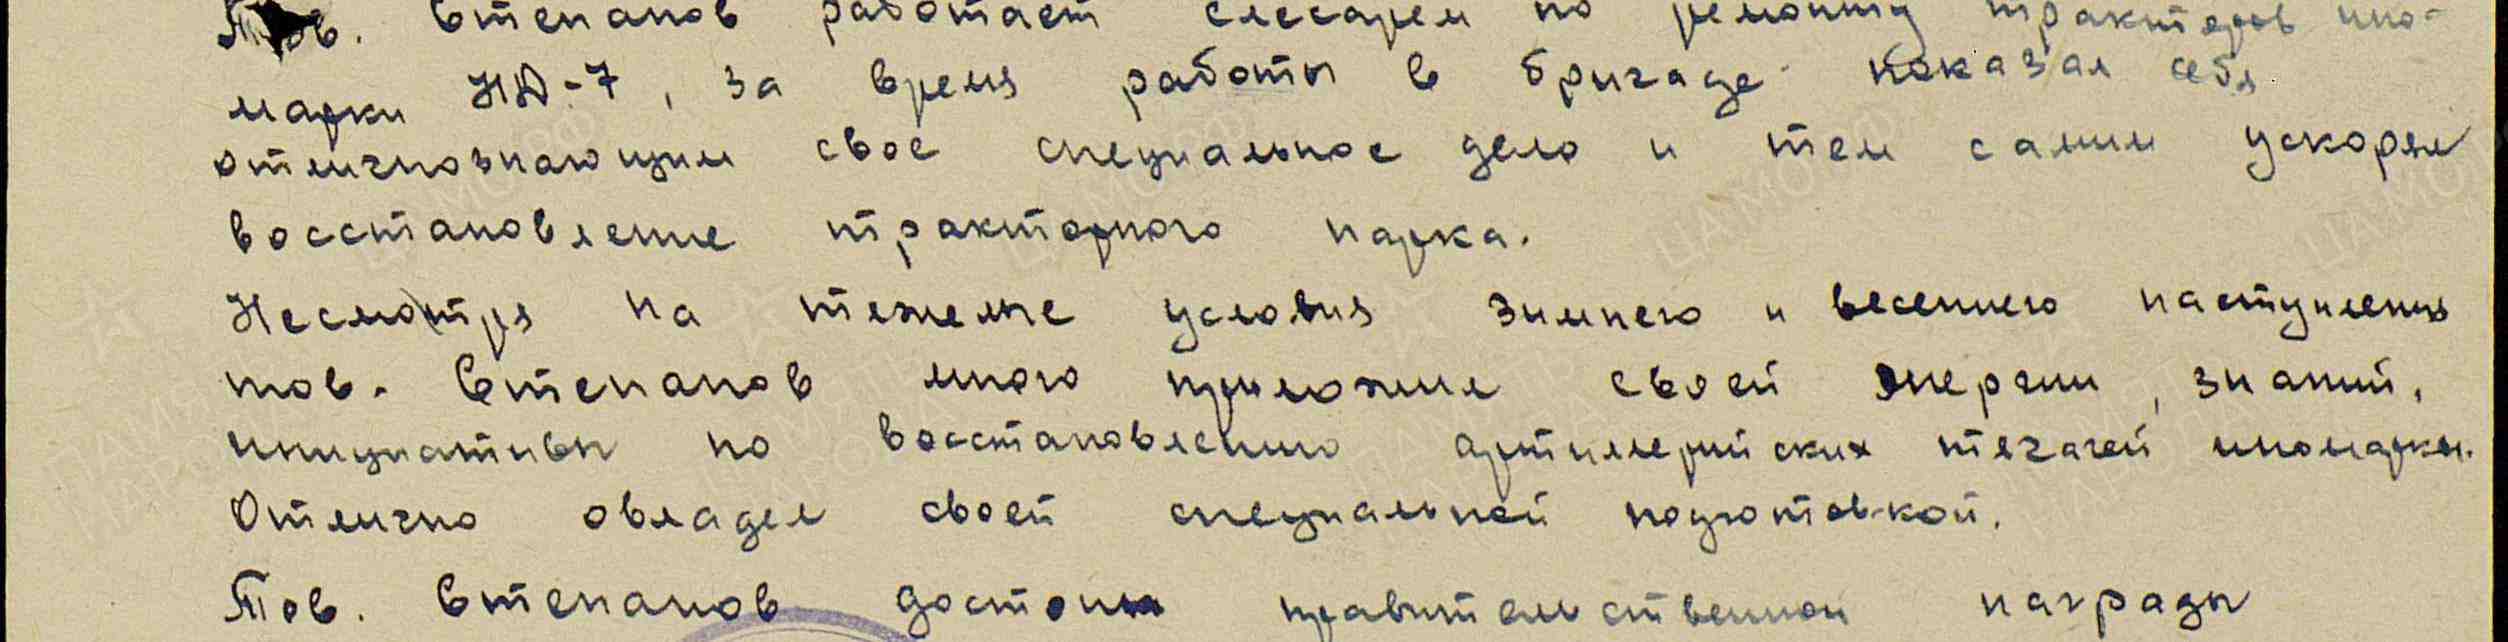 Тов. Степанов работает слесарем по ремонту тракторов ино-
марки НД-7, за время работы в бригаде показал себя
отличнознающим свое специальное дело и тем самим ускорял
восстановление тракторного парка.
Несмотря на тяжелые условия зимнего и весеннего наступления
тов. Степанов много приложил своей энергии, знаний,
инициативы по восстановлению артиллерийских тягачей иномарки.
Отлично овладел своей специальной подготовкой.
Тов. Степанов достоин правительственной награды